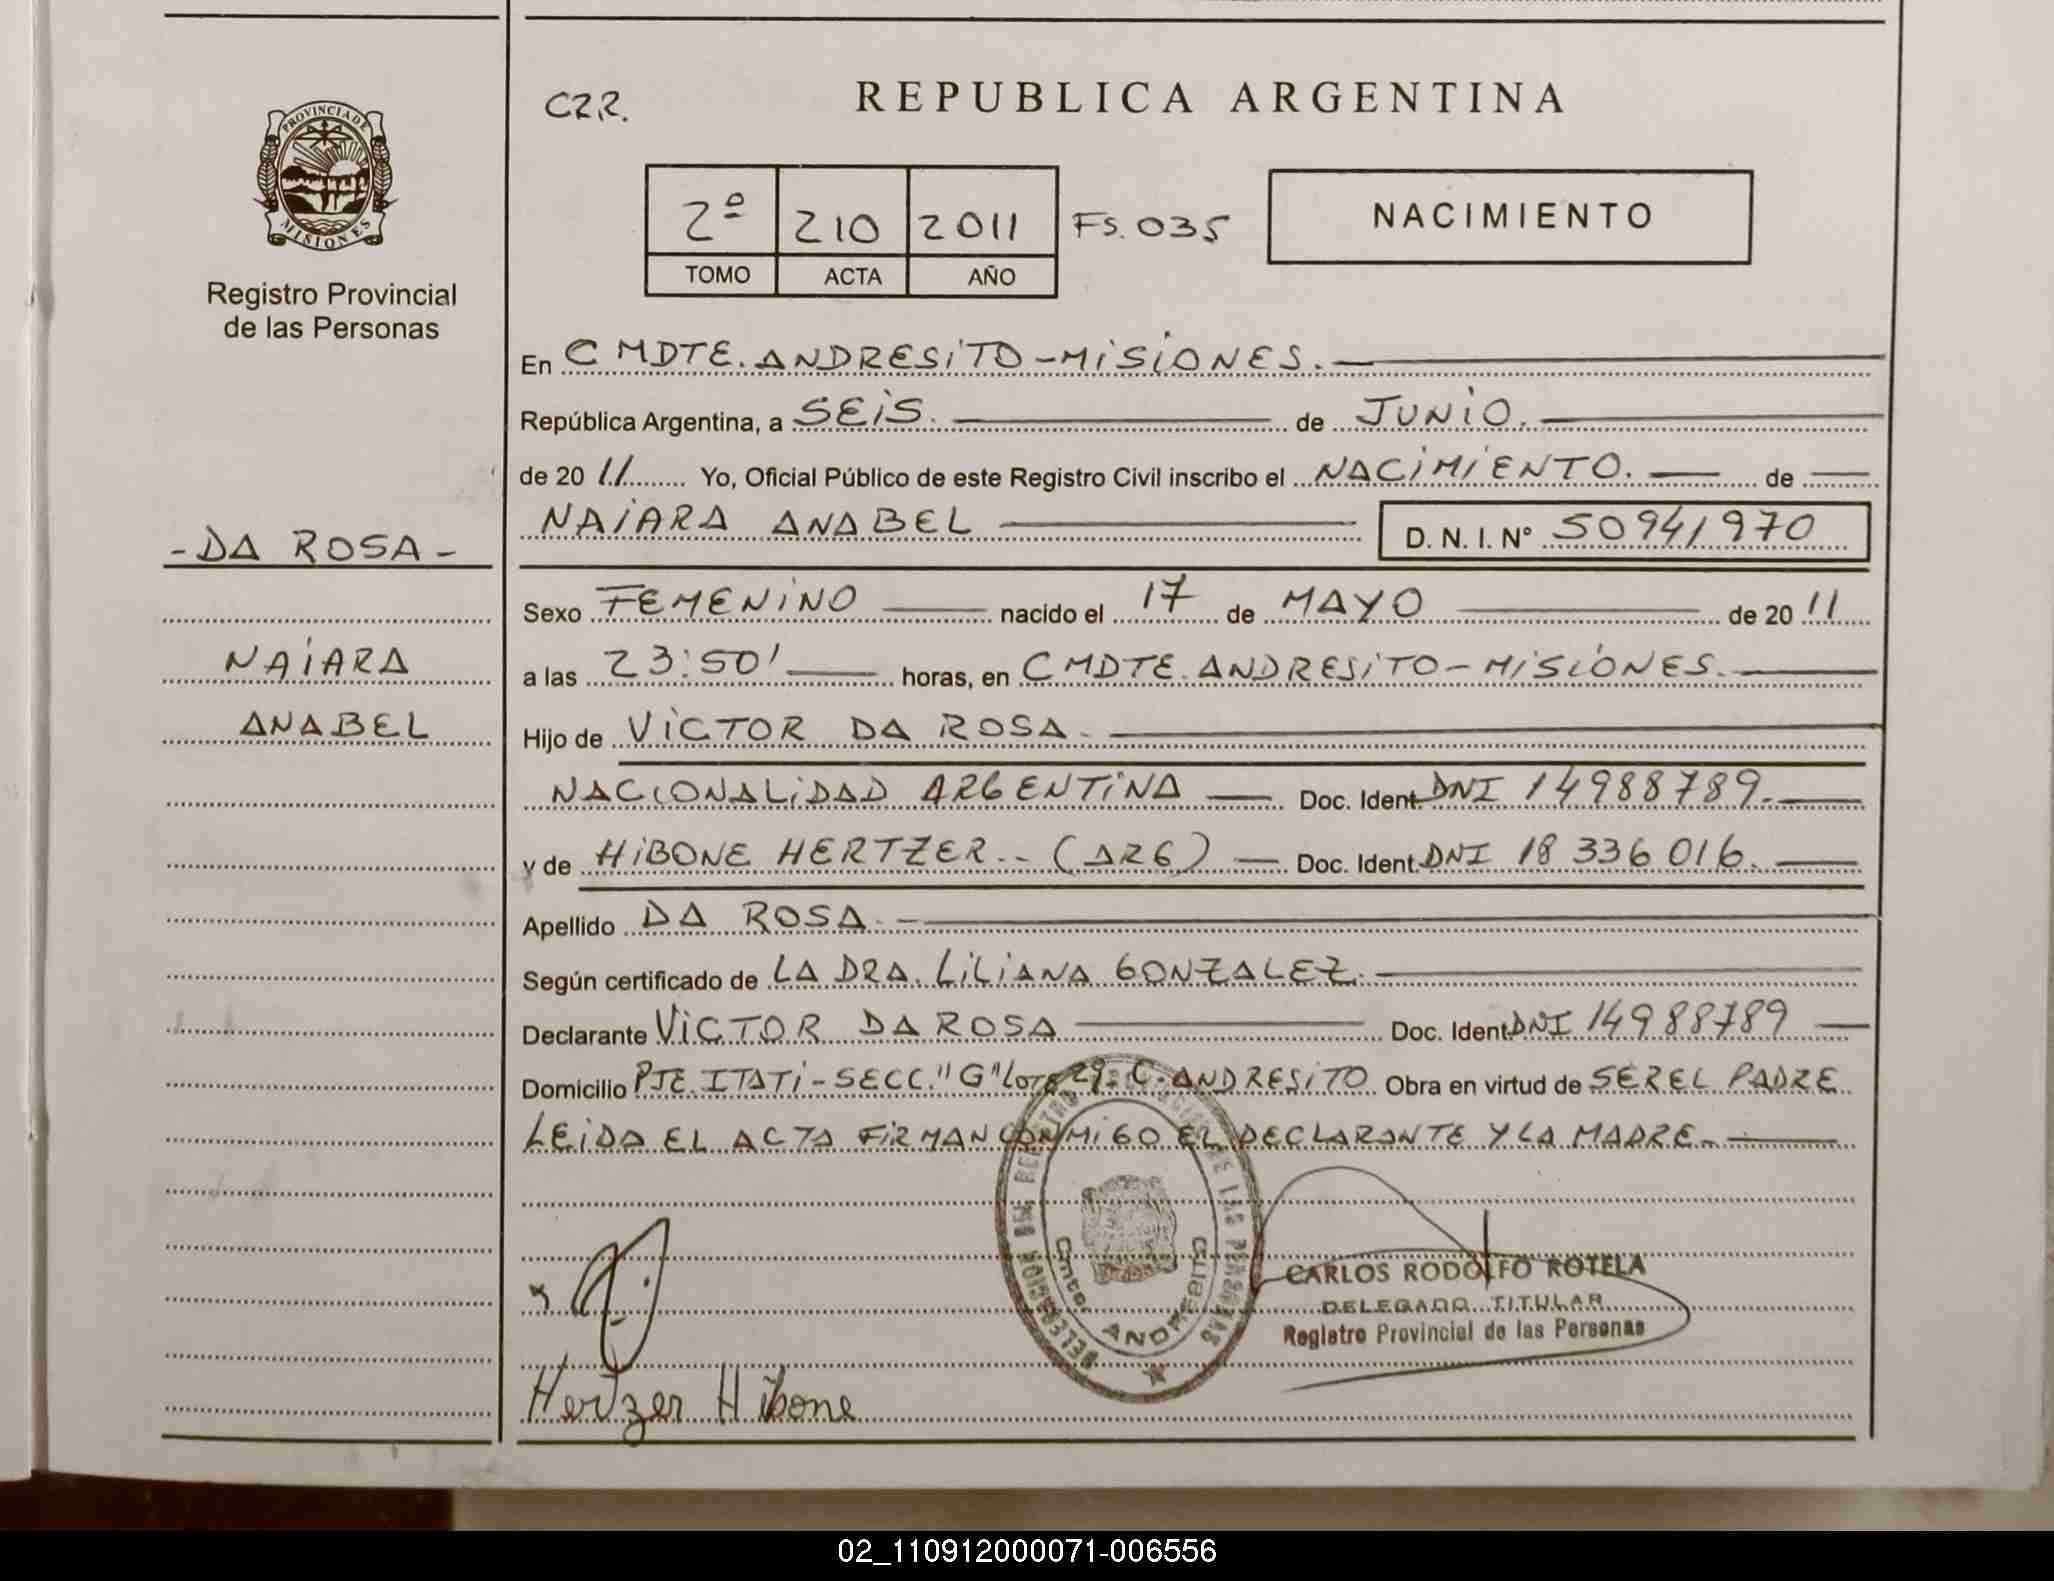 C.R.R.
REPUBLICA ARGENTINA
PROVINCIA DE
MISIONES
Registro Provincial
de las Personas
2º 210 2011 FS. 035
TOMO ACTA AÑO
NACIMIENTO
En CMDTE. ANDRESITO - MISIONES.
República Argentina, a SEIS. de JUNIO.
de 20 11 Yo, Oficial Público de este Registro Civil inscribo el NACIMIENTO. de
NAIARA ANABEL D. N. I. Nº 50941970
- DA ROSA -
NAIARA
ANABEL
Sexo FEMENINO nacido el 17 de MAYO de 20 11
a las 23:50' horas, en CMDTE. ANDRESITO - MISIONES.
Hijo de VICTOR DA ROSA.
NACIONALIDAD ARGENTINA Doc. Ident. DNI 14988789.
y de HIBONE HERTZER.- (ARG) Doc. Ident. DNI 18 336 016.
Apellido DA ROSA.
Según certificado de LA DRA. LILIANA GONZALEZ.
Declarante VICTOR DA ROSA Doc. Ident. DNI 14988789
Domicilio PJE. ITATI - SECC. "G" LOTE 29. C. ANDRESITO Obra en virtud de SER EL PADRE
LEIDA EL ACTA FIRMAN CONMIGO EL DECLARANTE Y LA MADRE.
DELEGACION DEL REGISTRO PROVINCIAL DE LAS PERSONAS
Cmte. ANDRESITO
CARLOS RODOLFO ROTELA
DELEGADO TITULAR
Registro Provincial de las Personas
Hertzer Hibone
02_110912000071-006556